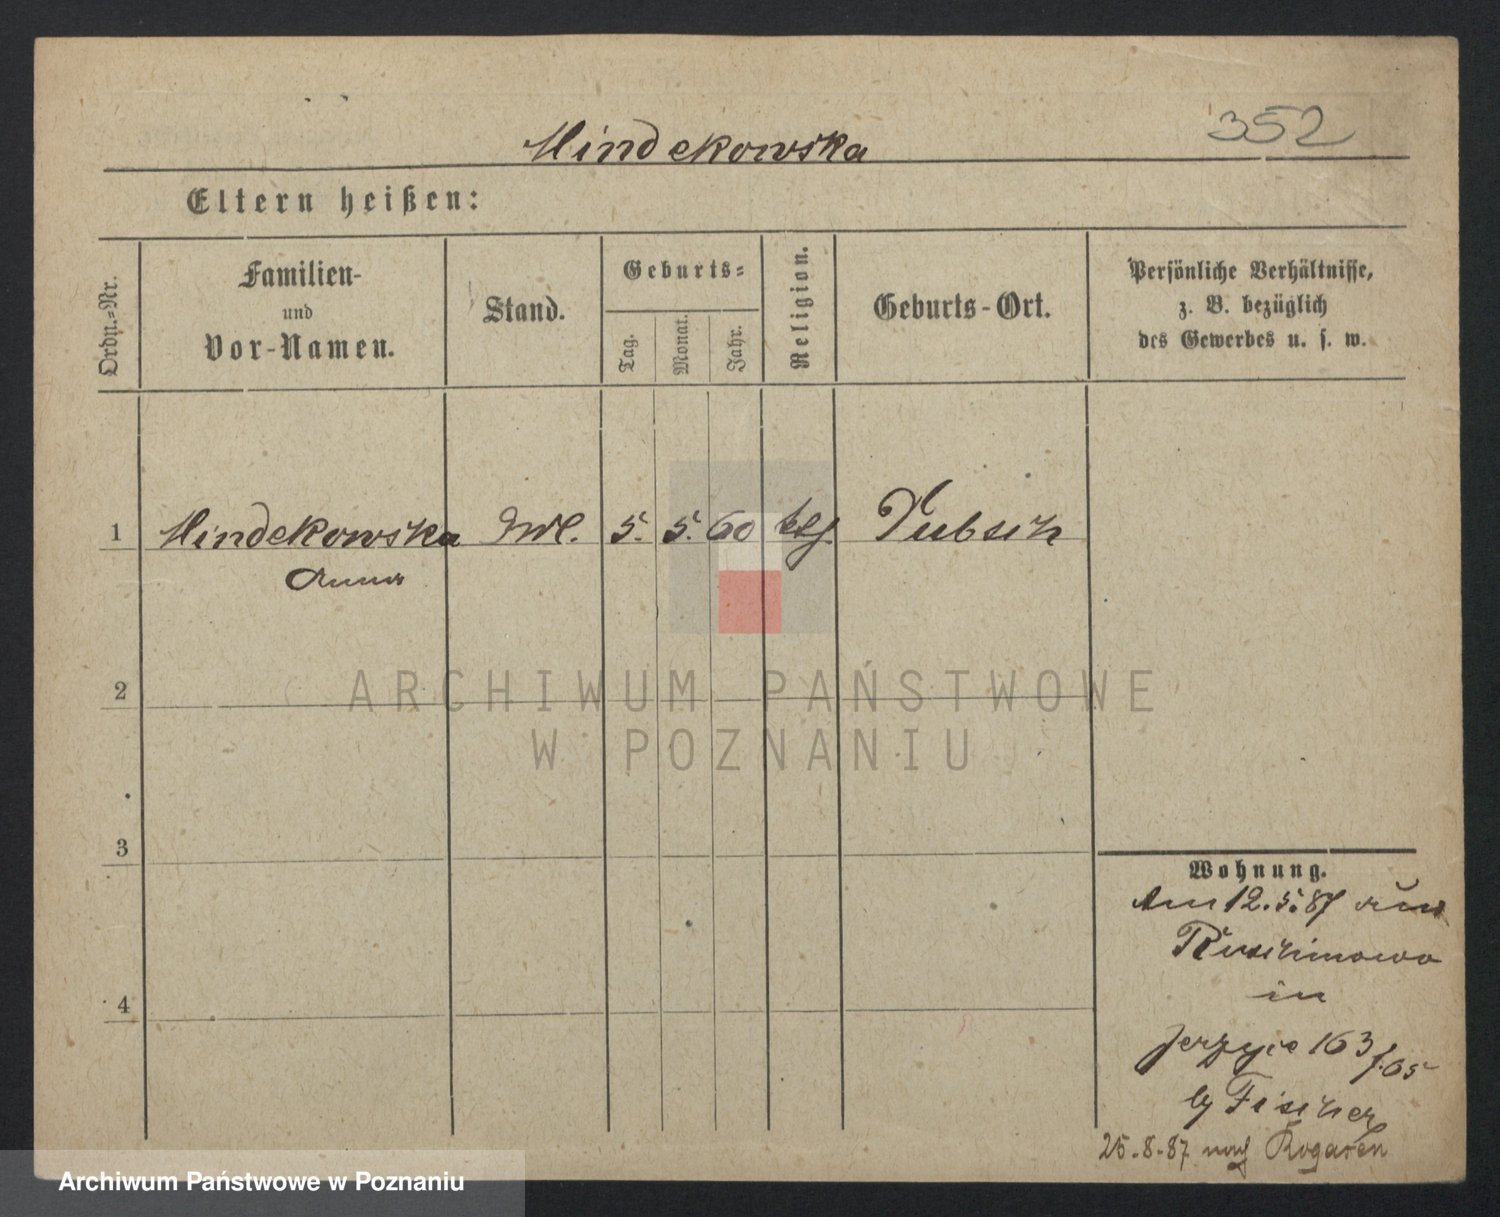 Mindekowska
352
Eltern heißen:
Ordn.-Nr.
Familien-
und
Vor-Namen.
Stand.
Geburts-
Tag.
Monat.
Jahr.
Religion.
Geburts-Ort.
Persönliche Verhältnisse,
z. B. bezüglich
des Gewerbes u. s. w.
1 Mindekowska 5. 5. 60 ktj.
Anna
2
ARCHIWUM PAŃSTWOWE
W POZNANIU
3
4
Wohnung.
Am 12.5.87 aus
in
Jerzyce 163
by Fischer
25.8.87 nach Rogasen
Archiwum Państwowe w Poznaniu